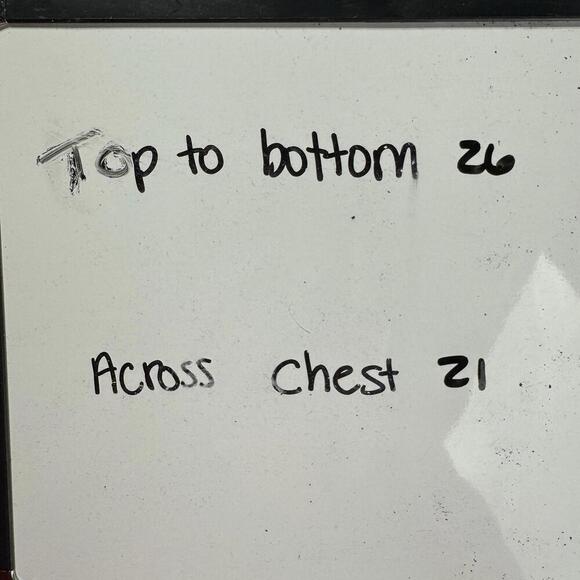 Top to bottom 26
Across chest 21